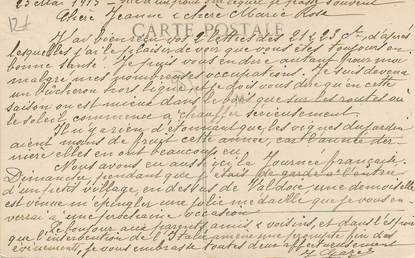 23 Mai 1915 - Vue d'un pont sur lequel je passe souvent
12f
Chère Jeanne & chère Marie Rose
CARTE POSTALE
J'ai bien reçu vos 2 lettres du 21 & 23 Ct, d'après
lesquelles j'ai le plaisir de voir que vous êtes toujours en
bonne santé. Je puis vous en dire autant pour moi
malgré mes nombreuses occupations. Je suis devenu
un bûcheron hors ligne, et je dois vous dire qu'en cette
saison on est mieux dans le bois que sur les routes où
le soleil commence à chauffer sérieusement
Il n'y a rien d'étonnant que les vignes du jardin
aient moins de fruit cette année, car l'année der-
nière elles en ont beaucoup eu.
Nous avons eu aussi ici la Journée française.
Dimanche, pendant que j'étais de garde à l'entrée
d'un petit village, en dessus de Valdoie une demoiselle
est venue m'épingler une jolie médaille que je vous en-
verrai à une prochaine occasion.
Le bonjour aux parents, amis & voisins, et dans l'espoir
que l'intervention de l'Italie amène une prompte fin des
évènements, je vous embrasse toutes deux affectueusement